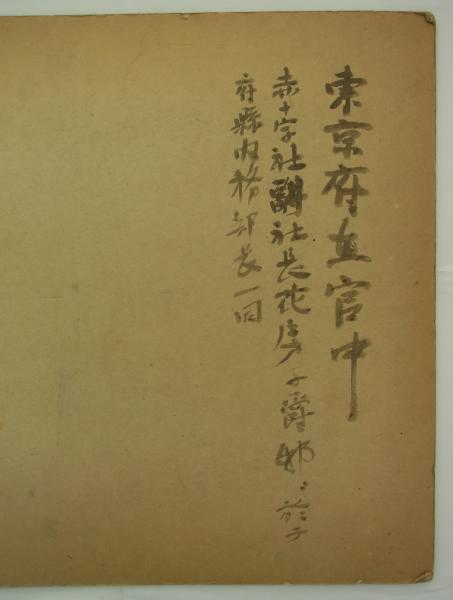 東京府在官中
赤十字社副社長花房子爵邸ニ於テ
府縣内務部長一同